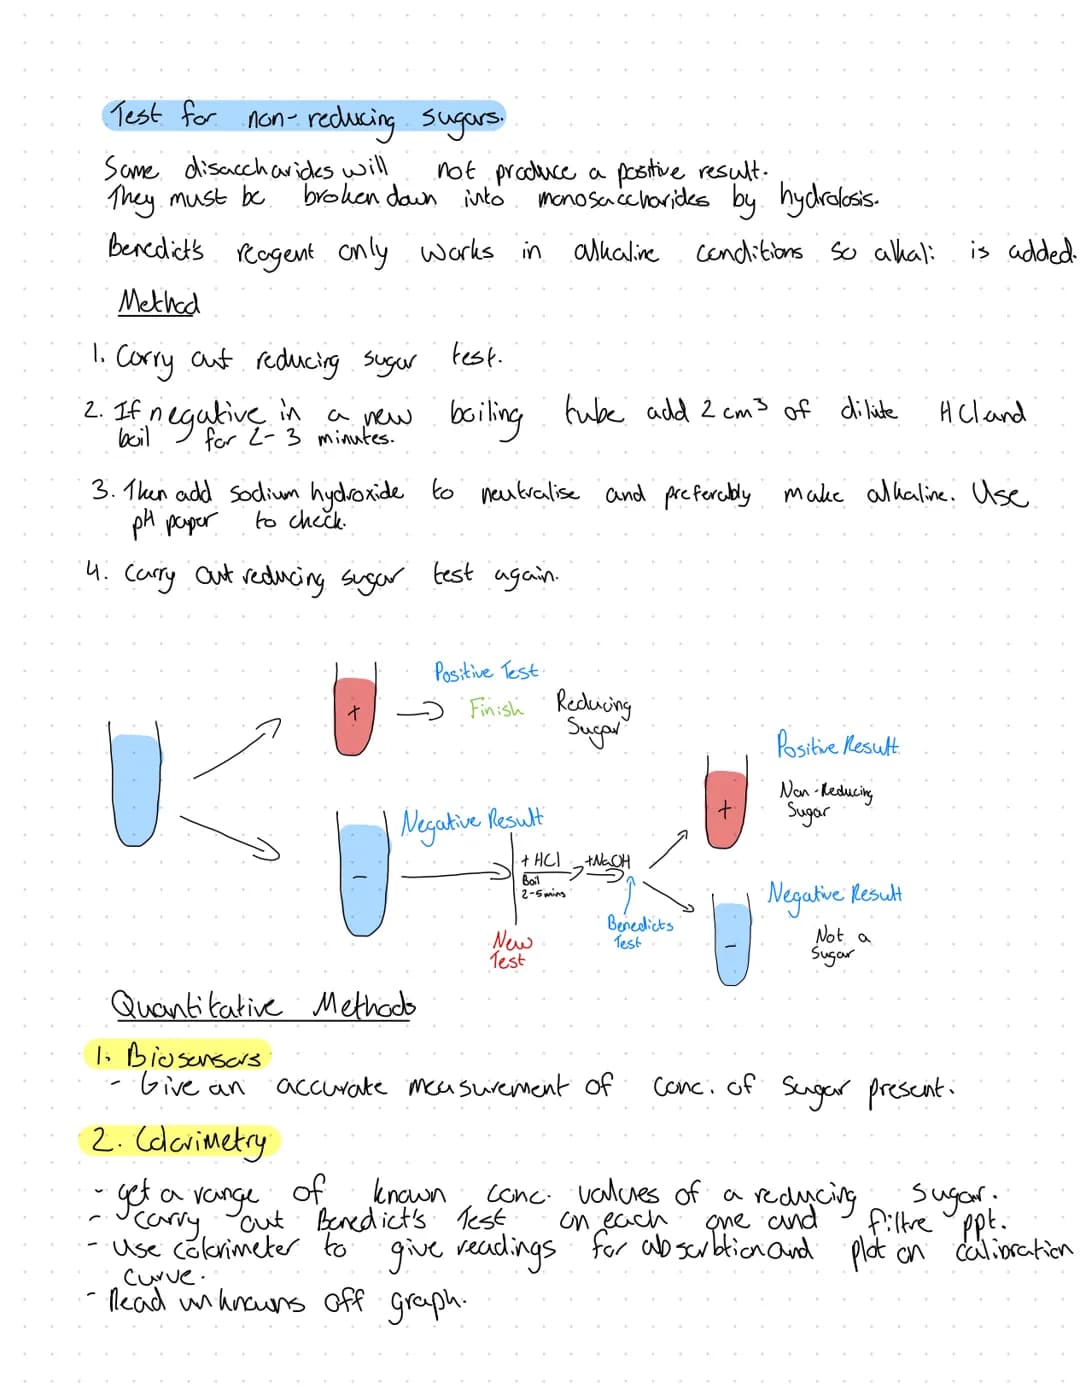 Test for non-reducing sugars.
Some disaccharides will not produce a positive result.
They must be broken down into monosaccharides by hydrolosis.
Benedict's reagent only works in alkaline conditions so alkali is added.
Method
1. Carry out reducing sugar test.
2. If negative in a new boiling tube add 2 cm³ of dilute HCl and
boil for 2-3 minutes.
3. Then add sodium hydroxide to neutralise and preferably make alkaline. Use
pH paper to check.
4. Carry out reducing sugar test again.
Positive Test
+ Finish Reducing
Sugar
Positive Result
+ Non-Reducing
Sugar
Negative Result
-
+ HCl +NaOH
Boil
2-5mins
Benedicts
Test
New
Test
Negative Result
- Not a
Sugar
Quantitative Methods
1. Biosensors
- Give an accurate measurement of conc. of sugar present.
2. Colorimetry
- get a range of known conc. values of a reducing sugar.
- carry out Benedict's Test on each one and filtre ppt.
- Use colorimeter to give readings for absorbtion and plot on calibration
curve.
- Read unknowns off graph.